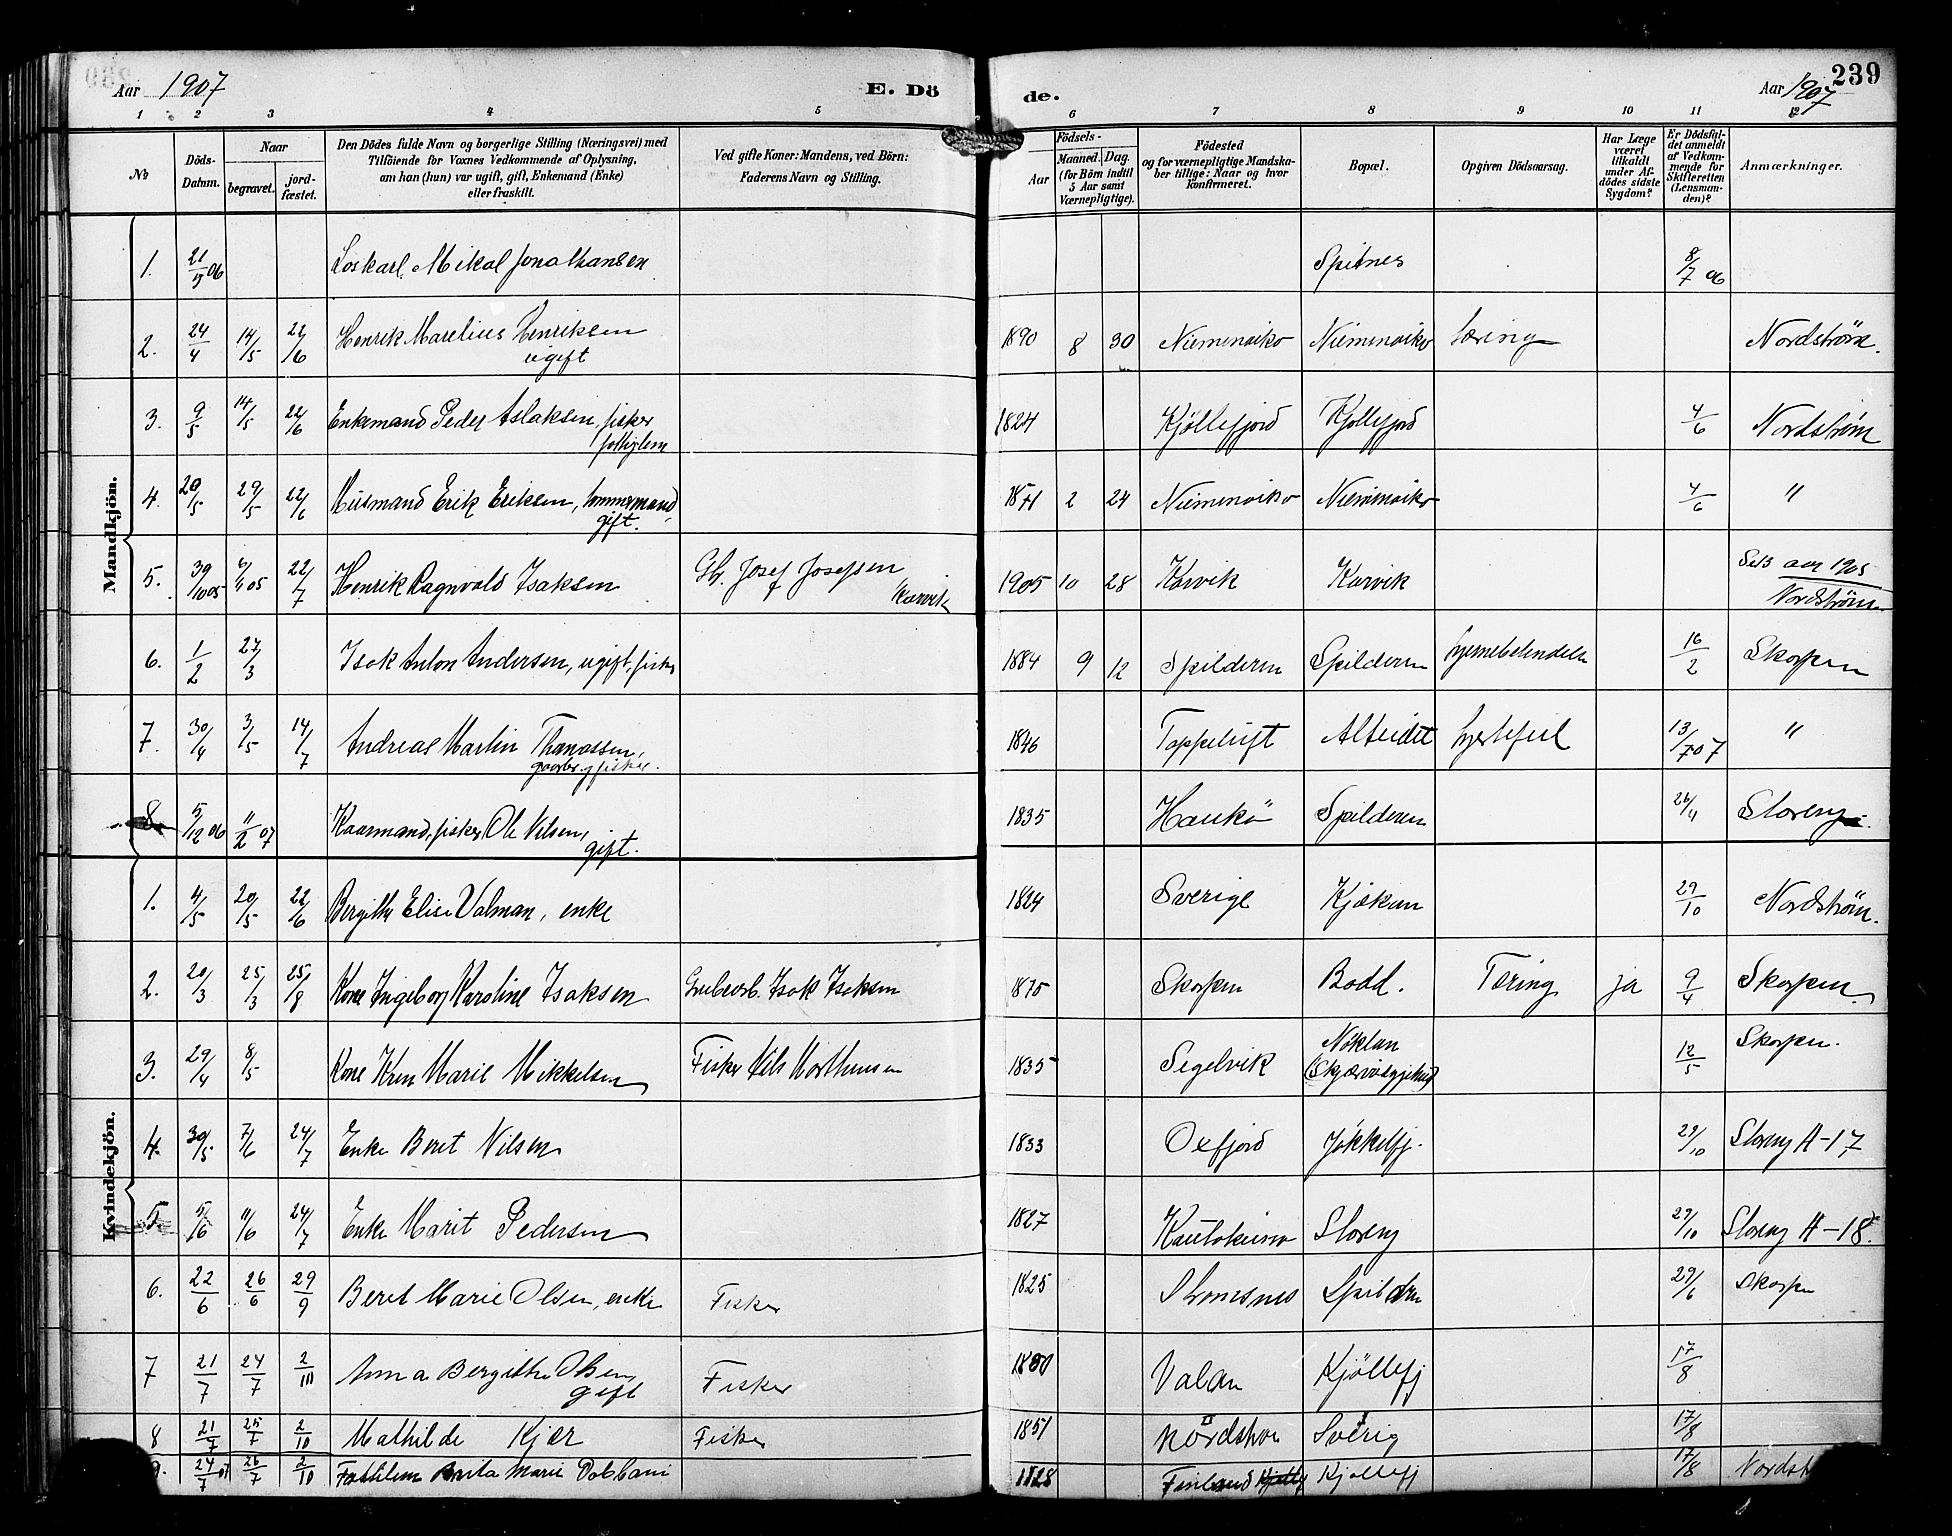 239
Aar 1907
E. Dö
de.
Aar 1907
1 2 3 4 5 6 7 8 9 10 11 12
№
Döds-Datum.
Naar
begravet.
jord-fæstet.
Den Dödes fulde Navn og borgerlige Stilling (Næringsvei) med
Tilföiende for Voxnes Vedkommende af Oplysning,
om han (hun) var ugift, gift, Enkemand (Enke)
eller fraskilt.
Ved gifte Koner: Mandens, ved Börn:
Faderens Navn og Stilling.
Födsels-
Aar
Maaned. Dag.
(for Börn indtil
5 Aar samt
Værnepligtige).
Födested
og for værnepligtige Mandska-
ber tillige: Naar og hvor
konfirmeret.
Bopæl.
Opgiven Dödsaarsag.
Har Læge
været
tilkaldt
under Af-
dödes sidste
Sygdom?
Er Dödsfal-
det anmeldt
af Vedkom-
mende for
Skifteretten
(Lensman-
den)?
Anmærkninger.
Mandkjön.
1. 21/5 06 Loskarl Mikal Jonathansen Spitnes 8/7 06
2. 24/4 14/5 22/6 Henrik Marelius Henriksen 1890 8 30 Niemenaiko Niemenaiko Tæring Nordström.
ugift
3. 9/5 14/5 22/6 Enkemand Peder Aslaksen, fisker 1824 Kjøllefjord Kjøllefjord 4/6 Nordström
fattiglem
4. 20/5 29/5 22/6 Husmand Erik Eriksen, tømmermand 2 24 Niemenaiko Niemenaiko 4/6 "
gift.
5. 30/10 05 6/11 05 22/7 Henrik Ragnvald Isaksen Gbr. Josef Josefsen 1905 10 28 Karvik Karvik
Karvik aar 1905
Nordström
6. 1/2 27/3 Isak Anton Andersen, ugift, fisker 1884 9 12 Spilderen Spilderen hjernebetendelse 16/2 Skorpen
7. 30/4 3/5 14/7 Andreas Martin Thomassen, 1846 Toppelbugt Alteidet hjertefeil 13/7 07 "
gaardbr. og fisker.
8 5/12 06 11/2 07 Kaarmand, fisker Ole Nilsen, 1835 Haukö Spilderen 26/4 Storeng.
gift.
Kvindekjön.
1. 4/5 20/5 22/6 Bergithe Elise Valman, enke 1824 Sverige Kjækan 29/10 Nordström.
2. 20/3 25/3 25/8 Kone Ingeborg Karoline Isaksen Grubearb. Isak Isaksen 1875 Skorpen Badd. Tæring ja 9/4 Skorpen.
3. 29/4 8/5 Kone Karen Marie Mikkelsen Fisker Nils Morthensen 1835 Segelvik Nöklan 12/5 Skorpen.
4. 30/5 7/6 24/7 Enke Beret Nilsen 1833 Oxfjord Jökkelfj. 29/10 Storeng A-17
5. 5/6 11/6 24/7 Enke Marit Pedersen 1827 Kautokeino Storeng 29/10 Storeng A-18.
6. 22/6 26/6 29/9 Beret Marie Olsen, enke Fisker 1825 Stromsnes Spildren 29/6 Skorpen
7 21/7 24/7 2/10 Anna Bergithe Olsen Fisker Valan Kjöllefj 17/8
gift
8 21/7 25/7 2/10 Mathilde Kjær Fisker 1851 Nordstrøm Sverig 17/8
9. 24/7 07 26/7 2/10 Fattiglem Anita Marie 1828 Finland Kjöllefj 17/8 Nordst